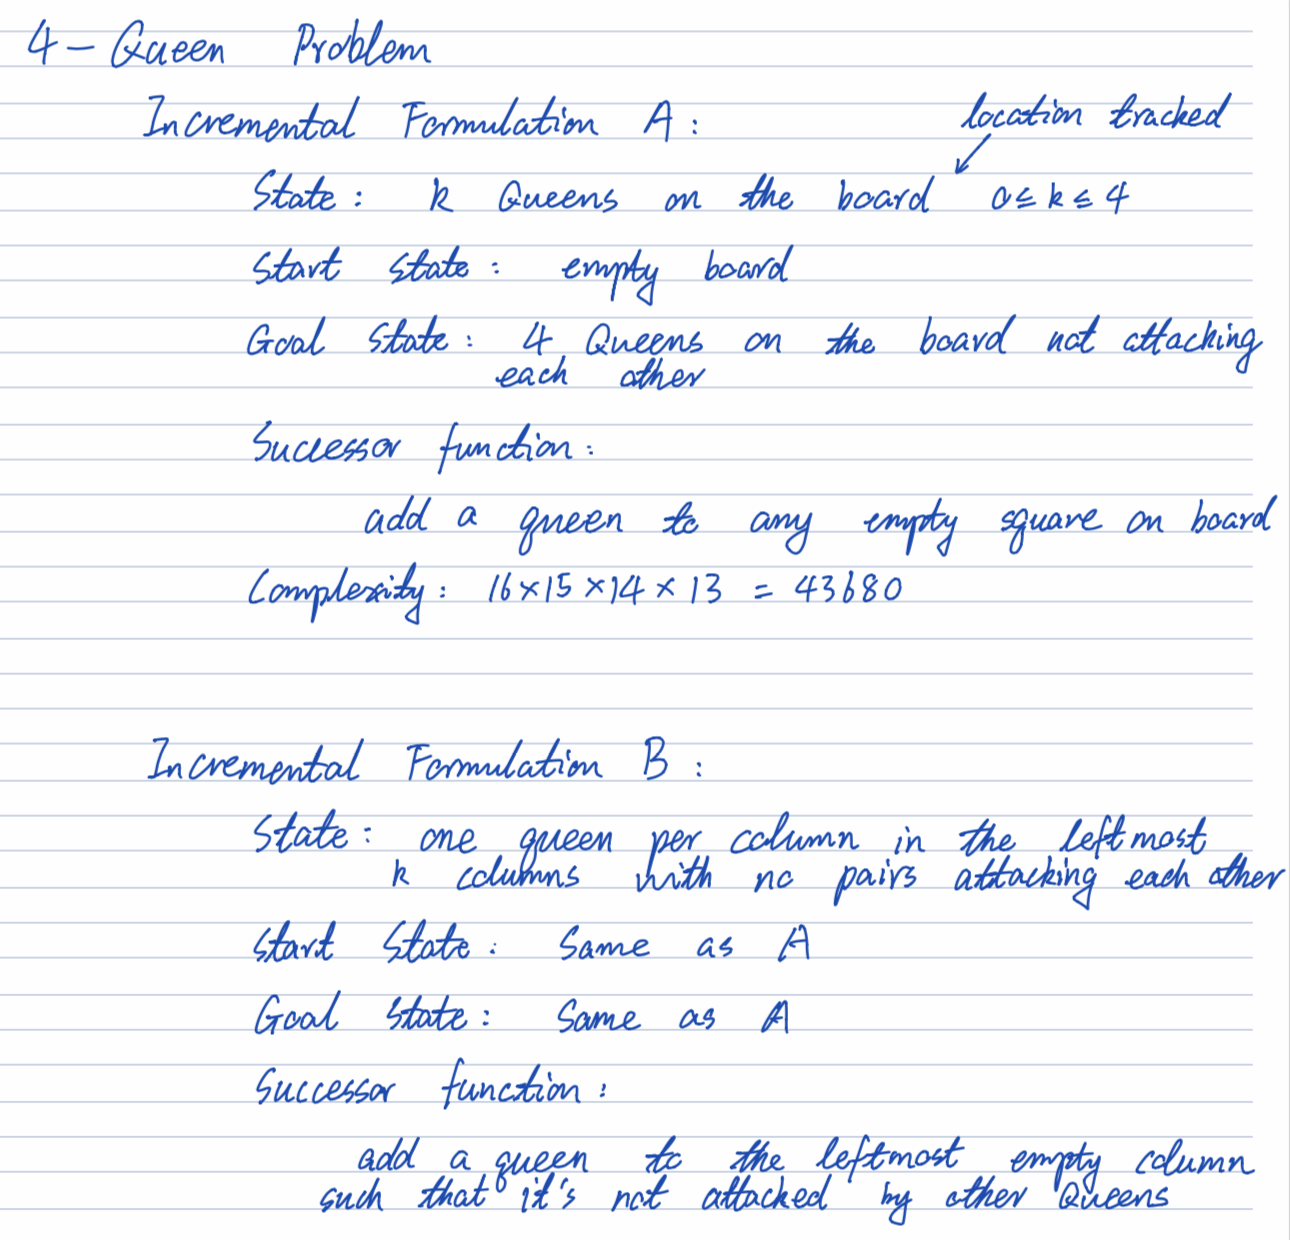 4-Queen Problem
Incremental Formulation A:
location tracked
State: k Queens on the board 0≤k≤4
Start state: empty board
Goal State: 4 Queens on the board not attacking
each other
Successor function:
add a queen to any empty square on board
Complexity: 16×15×14×13 = 43680
Incremental Formulation B:
State: one queen per column in the leftmost
k columns with no pairs attacking each other
Start State: Same as A
Goal State: Same as A
Successor function:
add a queen to the leftmost empty column
such that it's not attacked by other Queens